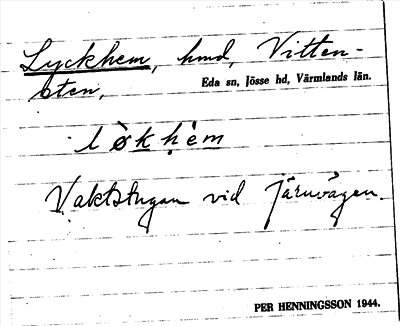 Lyckhem, hmd, Vitten-
sten,
Eda sn, Jösse hd, Värmlands län.
lø̀kḥèm
Vaktstugan vid järnvägen.
PER HENNINGSSON 1944.